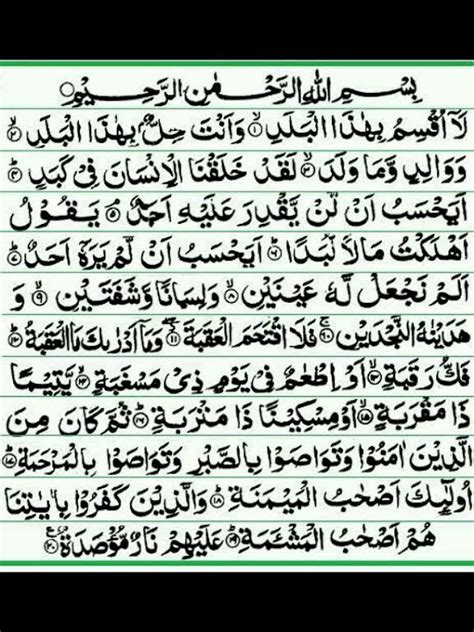 بِسْمِ اللهِ الرَّحْمٰنِ الرَّحِيْمِ
لَآ اُقْسِمُ بِهٰذَا الْبَلَدِ ۙ﴿۱﴾ وَاَنْتَ حِلٌّۢ بِهٰذَا الْبَلَدِ ۙ﴿۲﴾
وَوَالِدٍ وَّمَا وَلَدَ ۙ﴿۳﴾ لَقَدْ خَلَقْنَا الْاِنْسَانَ فِيْ كَبَدٍ ﴿۴﴾
اَيَحْسَبُ اَنْ لَّنْ يَّقْدِرَ عَلَيْهِ اَحَدٌ ۘ﴿۵﴾ يَقُوْلُ
اَهْلَكْتُ مَالًا لُّبَدًا ﴿۶﴾ اَيَحْسَبُ اَنْ لَّمْ يَرَهٗٓ اَحَدٌ ﴿۷﴾
اَلَمْ نَجْعَلْ لَّهٗ عَيْنَيْنِ ۙ﴿۸﴾ وَلِسَانًا وَّشَفَتَيْنِ ۙ﴿۹﴾ وَ
هَدَيْنٰهُ النَّجْدَيْنِ ۚ﴿۱۰﴾ فَلَا اقْتَحَمَ الْعَقَبَةَ ﴿۱۱﴾ وَمَآ اَدْرٰىكَ مَا الْعَقَبَةُ ﴿۱۲﴾
فَكُّ رَقَبَةٍ ۙ﴿۱۳﴾ اَوْ اِطْعٰمٌ فِيْ يَوْمٍ ذِيْ مَسْغَبَةٍ ۙ﴿۱۴﴾ يَّتِيْمًا
ذَا مَقْرَبَةٍ ۙ﴿۱۵﴾ اَوْ مِسْكِيْنًا ذَا مَتْرَبَةٍ ﴿۱۶﴾ ثُمَّ كَانَ مِنَ
الَّذِيْنَ اٰمَنُوْا وَتَوَاصَوْا بِالصَّبْرِ وَتَوَاصَوْا بِالْمَرْحَمَةِ ﴿۱۷﴾
اُولٰٓئِكَ اَصْحٰبُ الْمَيْمَنَةِ ﴿۱۸﴾ وَالَّذِيْنَ كَفَرُوْا بِاٰيٰتِنَا
هُمْ اَصْحٰبُ الْمَشْئَمَةِ ﴿۱۹﴾ عَلَيْهِمْ نَارٌ مُّؤْصَدَةٌ ﴿۲۰﴾